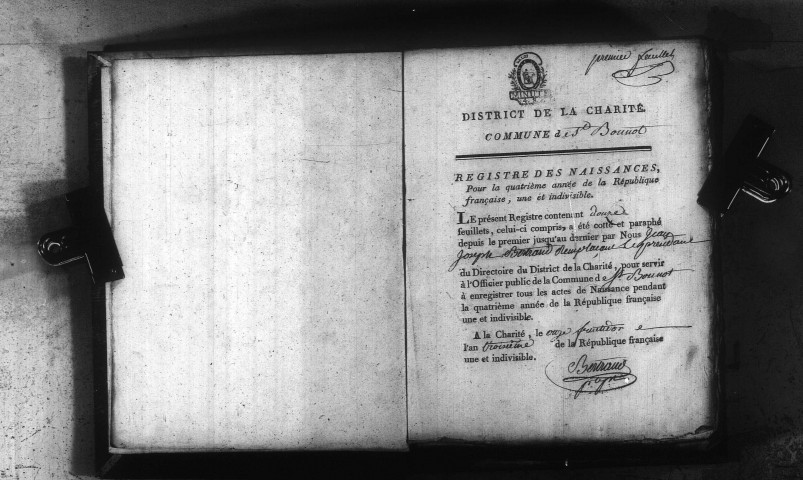 premier feuillet
MINUTE
DISTRICT DE LA CHARITÉ.
COMMUNE de St Bonnot
REGISTRE DES NAISSANCES,
Pour la quatrième année de la République
française, une et indivisible.
LE présent Registre contenant douze
feuillets, celui-ci compris, a été cotté et paraphé
depuis le premier jusqu'au dernier par Nous Jean
Joseph Bertrand Remplaçant le président
du Directoire du District de la Charité, pour servir
à l'Officier public de la Commune de St Bonnot
à enregistrer tous les actes de Naissance pendant
la quatrième année de la République française
une et indivisible.
A la Charité, le onze fructidor
l'an troisième de la République française
une et indivisible.
Bertrand